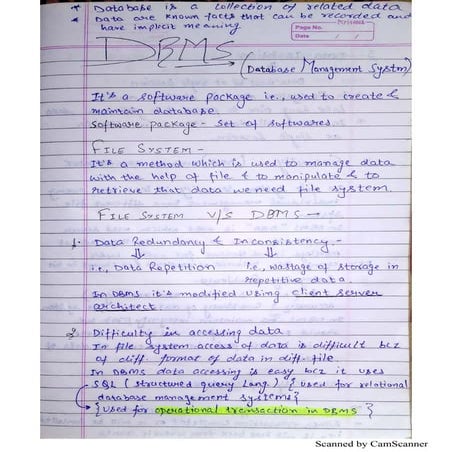 * Database is a collection of related data
* Data are known facts that can be recorded and
have implicit meaning
Page No.
Date / /
DBMS
(Database Management System)
It's a software package i.e., used to create &
maintain database.
Software package - Set of softwares.
FILE SYSTEM -
It's a method which is used to manage data
with the help of file & to manipulate & to
retrieve that data we need file system.
FILE SYSTEM V/S DBMS
1. Data Redundancy & Inconsistency -
i.e., Data Repetition i.e., wastage of storage in
repetitive data.
In DBMS it's modified using client server
architect
2. Difficulty in accessing data
In file system access of data is difficult bcz
of diff. format of data in diff. file.
In DBMS data accessing is easy bcz it uses
SQL (structured query Lang.) {used for relational
database management systems}
{used for operational transaction in DBMS}
Scanned by CamScanner